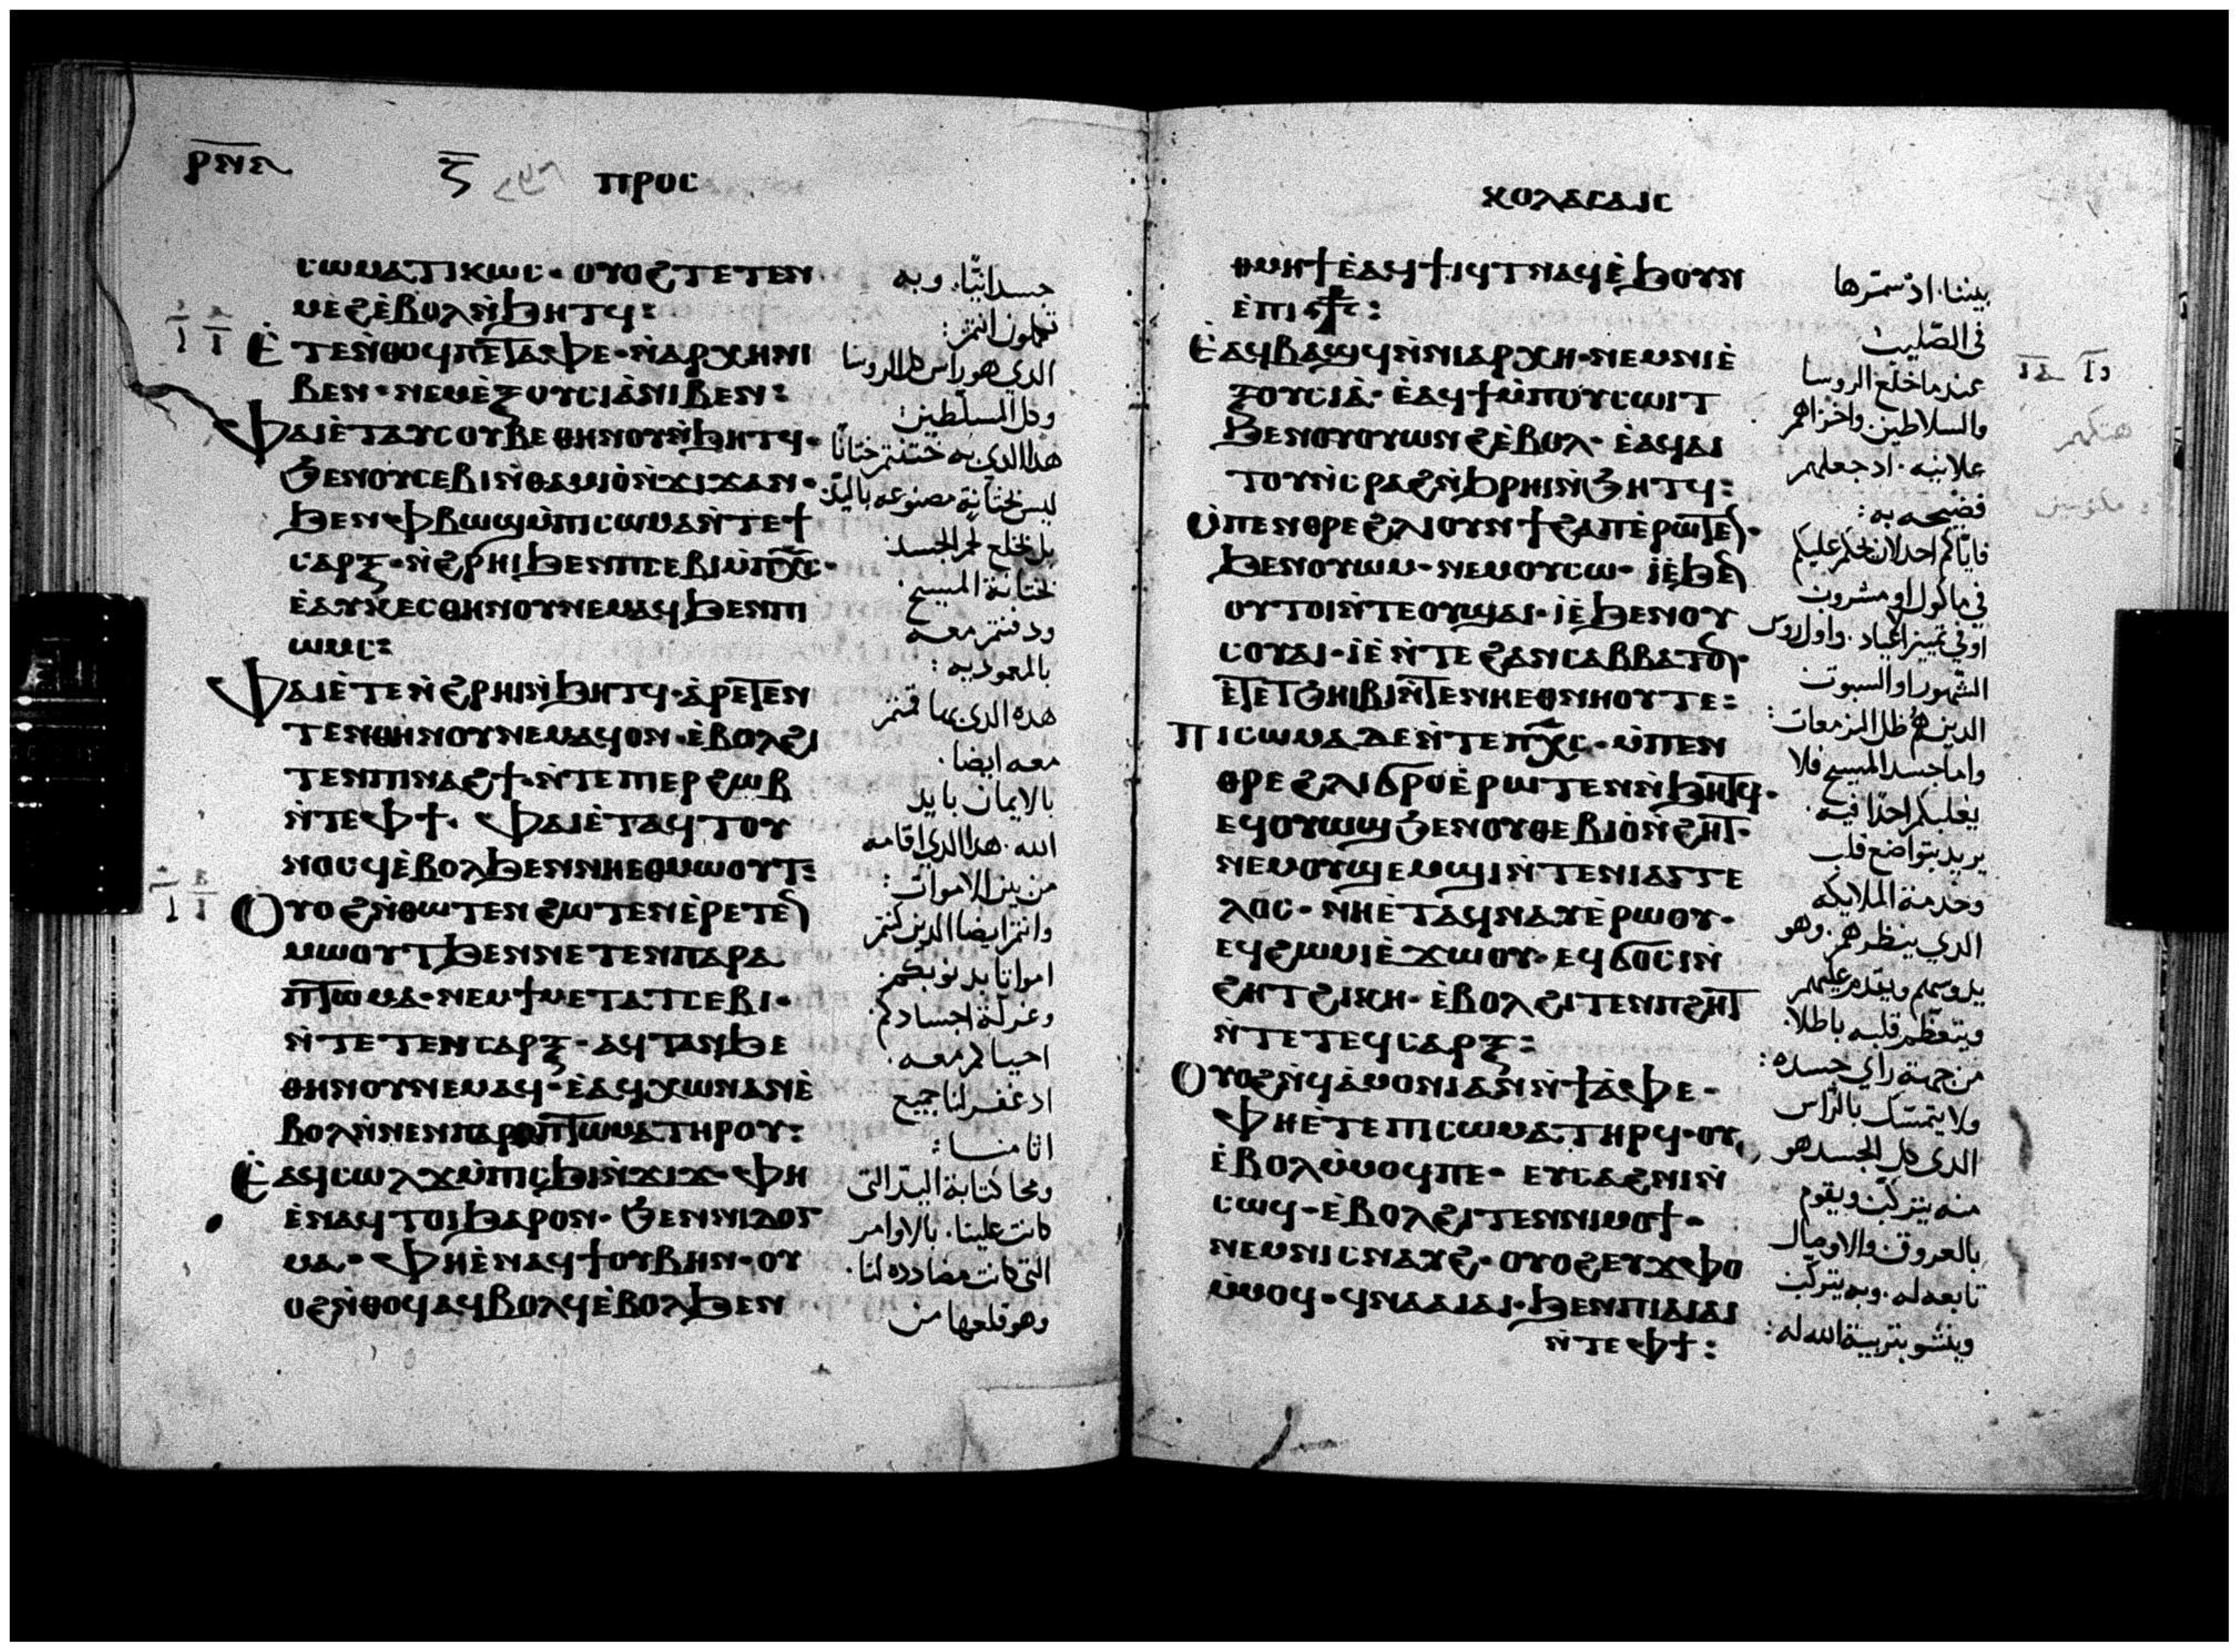 ⲡⲣⲟⲥ
ⲥⲱⲙⲁⲧⲓⲕⲱⲥ· ⲟⲩⲟϩ ⲧⲉⲧⲉⲛ
ⲙⲉϩ ⲉ̀ⲃⲟⲗ ⲛ̀ϧⲏⲧϥ:
Ⲉ̀ⲧⲉ ⲛ̀ⲑⲟϥ ⲡⲉ ⲧⲁⲫⲉ· ⲛ̀ⲁⲣⲭⲏ ⲛⲓ
ⲃⲉⲛ· ⲛⲉⲙ ⲉ̀ⲝⲟⲩⲥⲓⲁ̀ ⲛⲓⲃⲉⲛ:
Ⲫⲁⲓ ⲉ̀ⲧⲁⲩⲥⲟⲩⲃⲉ ⲑⲏⲛⲟⲩ ⲛ̀ϧⲏⲧϥ·
ϧⲉⲛ ⲟⲩⲥⲉⲃⲓ ⲛ̀ⲑⲁⲙⲓⲟ̀ ⲛ̀ϫⲓϫ ⲁⲛ·
ϧⲉⲛ ⲫⲃⲱϣ ⲙ̀ⲡⲓⲥⲱⲙⲁ ⲛ̀ⲧⲉ ϯ
ⲥⲁⲣⲝ· ⲛ̀ϩⲣⲏⲓ ϧⲉⲛ ⲡⲥⲉⲃⲓ ⲙ̀ⲡⲭ̅ⲥ̅·
ⲉ̀ⲁⲩⲕⲉⲥ ⲑⲏⲛⲟⲩ ⲛⲉⲙⲁϥ ϧⲉⲛ ⲡⲓ
ⲱⲙⲥ:
Ⲫⲁⲓ ⲉ̀ⲧⲉ ⲛ̀ϩⲣⲏⲓ ⲛ̀ϧⲏⲧϥ· ⲁ̀ⲣⲉⲧⲉⲛ
ⲧⲉⲛ ⲑⲏⲛⲟⲩ ⲛⲉⲙⲁϥ ⲟⲛ· ⲉ̀ⲃⲟⲗ ϩⲓ
ⲧⲉⲛ ⲡⲛⲁϩϯ· ⲛ̀ⲧⲉ ⲡⲉⲣϩⲱⲃ
ⲛ̀ⲧⲉ ⲫϯ· Ⲫⲁⲓ ⲉ̀ⲧⲁϥⲧⲟⲩ
ⲛⲟⲥϥ ⲉ̀ⲃⲟⲗ ϧⲉⲛ ⲛⲏⲉⲑⲙⲱⲟⲩⲧ:
Ⲟⲩⲟϩ ⲛ̀ⲑⲱⲧⲉⲛ ϩⲱⲧⲉⲛ ⲉ̀ⲣⲉⲧⲉⲛ
ⲙⲱⲟⲩⲧ ϧⲉⲛ ⲛⲉⲧⲉⲛⲡⲁⲣⲁ
ⲡⲧⲱⲙⲁ· ⲛⲉⲙ ϯⲙⲉⲧⲁⲧⲥⲉⲃⲓ·
ⲛ̀ⲧⲉ ⲧⲉⲛⲥⲁⲣⲝ· ⲁϥⲧⲁⲛϧⲉ
ⲑⲏⲛⲟⲩ ⲛⲉⲙⲁϥ· ⲉ̀ⲁϥⲭⲱ ⲛⲁⲛ ⲉ̀
ⲃⲟⲗ ⲛ̀ⲛⲉⲛⲡⲁⲣⲁⲡⲧⲱⲙⲁ ⲧⲏⲣⲟⲩ:
Ⲉ̀ⲁϥⲥⲱⲗϫ ⲙ̀ⲡⲓⲥϧⲓ ⲛ̀ϫⲓϫ· ⲫⲏ
ⲉ̀ⲛⲁϥⲧⲟⲓ ϧⲁⲣⲟⲛ· ϧⲉⲛ ⲛⲓⲇⲟⲅ
ⲙⲁ· ⲫⲏ ⲉ̀ⲛⲁϥϯ ⲟⲩⲃⲏⲛ· ⲟⲩ
ⲟϩ ⲛ̀ⲑⲟϥ ⲁϥⲃⲟⲗϥ ⲉ̀ⲃⲟⲗ ϧⲉⲛ
جسدانيًا. وبه
تملون انتم:
الدي هو راس كل الروسا
وكل المسلطين:
هدا الدي به ختنتم ختانًا
ليس بختانة مصنوعه باليد
بل بخلع لحم الجسد
بختانة المسيح
ودفنتم معه
بالمعموديه:
هده الدي بها قمتم
معه ايضا.
بالايمان بايد
الله. هدا الدي اقامه
من بين الاموات:
وانتم ايضا الدين كنتم
امواتا بدنوبكم.
وغرلة اجسادكم.
احياكم معه.
اد غفر لنا جميع
اثامنا:
ومحا كتابة اليد التى
كانت علينا. بالاوامر
التى كانت مضادده لنا.
وهو قلعها من
ⲕⲟⲗⲁⲥⲁⲓⲥ
ⲑⲙⲏϯ ⲉ̀ⲁϥϯⲓϥⲧ ⲛⲁϥ ⲉ̀ϧⲟⲩⲛ
ⲉ̀ⲡⲓⲥ⳨ⲥ:
Ⲉ̀ⲁϥⲃⲁϣϥ ⲛ̀ⲛⲓⲁⲣⲭⲏ· ⲛⲉⲙ ⲛⲓⲉ̀
ⲝⲟⲩⲥⲓⲁ̀· ⲉ̀ⲁϥϯ ⲙ̀ⲡⲟⲩⲥⲱⲓⲧ
ϧⲉⲛ ⲟⲩⲟⲩⲱⲛϩ ⲉ̀ⲃⲟⲗ· ⲉ̀ⲁϥⲁⲓ
ⲧⲟⲩ ⲛ̀ⲥⲣⲁϩ ⲛ̀ϧⲣⲏⲓ ⲛ̀ϧⲏⲧϥ:
Ⲙ̀ⲡⲉⲛⲑⲣⲉ ϩⲗⲓ ⲟⲩⲛ ϯϩⲁⲡ ⲉ̀ⲣⲱⲧⲉⲛ·
ϧⲉⲛ ⲟⲩⲱⲙ· ⲛⲉⲙ ⲟⲩⲥⲱ· ⲓⲉ̀ ϧⲉⲛ
ⲟⲩⲧⲟⲓ ⲛ̀ⲧⲉ ⲟⲩϣⲁⲓ· ⲓⲉ̀ ϧⲉⲛ ⲟⲩ
ⲥⲟⲩⲁⲓ· ⲓⲉ̀ ⲛ̀ⲧⲉ ϩⲁⲛⲥⲁⲃⲃⲁⲧⲟⲛ·
ⲉ̀ⲧⲉ ⲧϧⲏⲓⲃⲓ ⲛ̀ⲧⲉ ⲛⲏⲉⲑⲛⲏⲟⲩ ⲧⲉ:
Ⲡⲓⲥⲱⲙⲁ ⲇⲉ ⲛ̀ⲧⲉ ⲡⲭ̅ⲥ̅· ⲙ̀ⲡⲉⲛ
ⲑⲣⲉ ϩⲗⲓ ϭⲣⲟ ⲉ̀ⲣⲱⲧⲉⲛ ⲛ̀ϧⲏⲧϥ·
ⲉϥⲟⲩⲱϣ ϧⲉⲛ ⲟⲩⲑⲉⲃⲓⲟ̀ ⲛ̀ϩⲏⲧ·
ⲛⲉⲙ ⲟⲩϣⲉⲙϣⲓ ⲛ̀ⲧⲉ ⲛⲓⲁⲅⲅⲉ
ⲗⲟⲥ· ⲛⲏ ⲉ̀ⲧⲁϥⲛⲁⲩ ⲉ̀ⲣⲱⲟⲩ·
ⲉϥϩⲱⲙⲓ ⲉ̀ϫⲱⲟⲩ· ⲉϥϭⲟⲥⲓ ⲛ̀
ϩⲏⲧ ϩⲓⲕⲏ· ⲉ̀ⲃⲟⲗ ϩⲓⲧⲉⲛ ⲡϩⲏⲧ
ⲛ̀ⲧⲉ ⲧⲉϥⲥⲁⲣⲝ:
Ⲟⲩⲟϩ ⲛ̀ϥⲁ̀ⲙⲟⲛⲓ ⲁⲛ ⲛ̀ϯⲁ̀ⲫⲉ·
ⲫⲏ ⲉ̀ⲧⲉ ⲡⲓⲥⲱⲙⲁ ⲧⲏⲣϥ· ⲟⲩ
ⲉ̀ⲃⲟⲗ ⲙ̀ⲙⲟϥ ⲡⲉ· ⲉⲩⲥⲁϩⲛⲓ ⲛ̀
ⲥⲱϥ· ⲉ̀ⲃⲟⲗ ϩⲓⲧⲉⲛ ⲛⲓⲙⲟϯ·
ⲛⲉⲙ ⲛⲓⲥⲛⲁⲩϩ· ⲟⲩⲟϩ ⲉⲩϫⲫⲟ
ⲙ̀ⲙⲟϥ· ϥⲛⲁⲁⲓⲁⲓ· ϧⲉⲛ ⲡⲓⲁⲓⲁⲓ
ⲛ̀ⲧⲉ ⲫϯ:
بيننا. اد سمرها
فى الصليب:
عندما خلع الروسا
والسلاطين. واخزاهم
علانيه. اد جعلهم
فضيحه به:
فاياكم احد الان يحكم عليكم
في ماكول او مشروب
او في تمييز اعياد. واول روس
الشهور او السبوت
الدين هم ظل المزمعات:
واما جسد المسيح فلا
يغلبكم احدًا فيه.
يريد بتواضع قلب
وخدمة الملايكه
الدي ينظرهم. وهو
يدوسهم ويتقدم عليهم
ويتعظم قلبه باطلا.
من جهة راي جسده:
ولا يتمسك بالراس
الدى كل الجسد هو
منه يتركب ويقوم
بالعروق والاوصال
تابعه له. وبه يتركب
وينشو بتربية الله له: